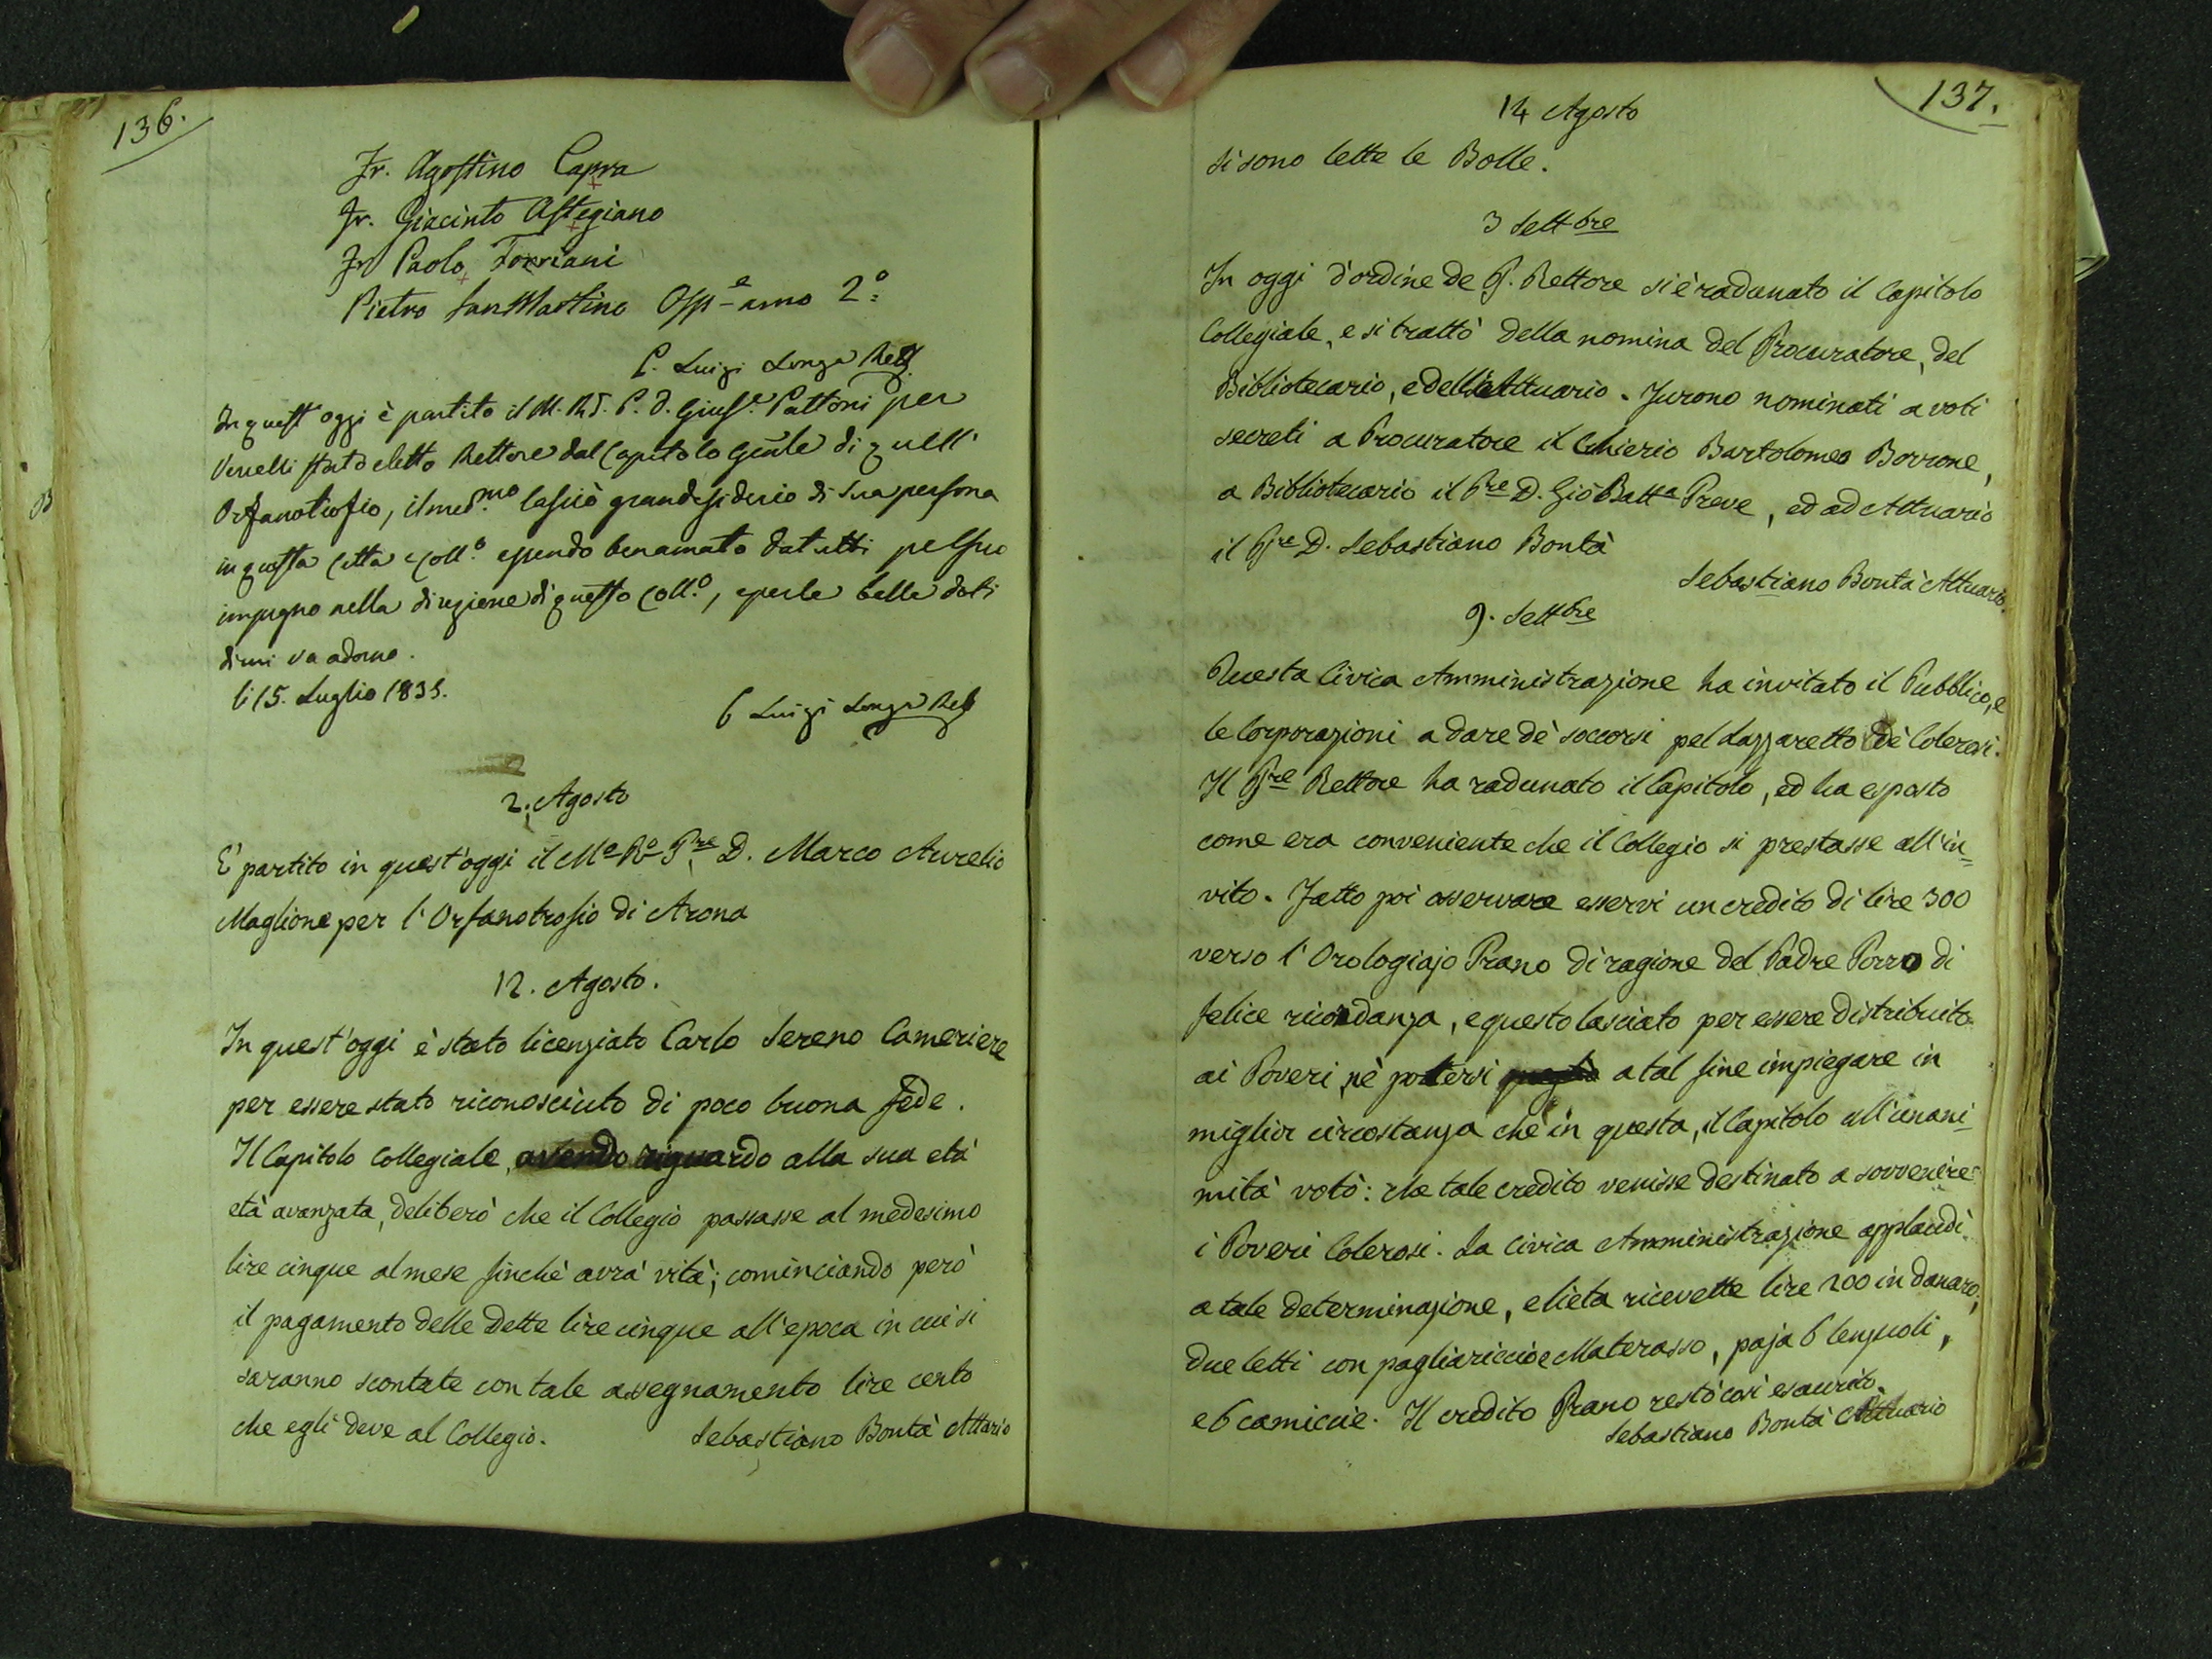 136.
Fr. Agostino Capra
Fr. Giacinto Astegiano
Fr Paolo Torriani
Pietro SanMartino Osp-e anno 2°
P. Luigi Longa Rett
In quest' oggi è partito il M. R.d. P. D. Giuse. Pattoni per
Vercelli stato eletto Rettore dal Capitolo Gn̄le di quell'
Orfanotrofio, il med.mo lasciò gran desiderio di sua persona
in questa Citta e Coll.o essendo ben amato da tutti pel suo
impegno nella direzione di questo Coll.o, e per le belle doti
di cui va adorno.
li 15. Luglio 1835.
P Luigi Longa Rett
2. Agosto
E' partito in quest'oggi il Mo Ro Pre D. Marco Aurelio
Maglione per l'Orfanotrofio di Arona
12. Agosto.
In quest'oggi è stato licenziato Carlo Sereno Cameriere
per essere stato riconosciuto di poco buona fede.
Il Capitolo Collegiale, avendo riguardo alla sua età
età avanzata, deliberò che il Collegio passasse al medesimo
lire cinque al mese finchè avrà vita; cominciando però
il pagamento delle dette lire cinque all'epoca in cui si
saranno scontate con tale assegnamento lire cento
che egli deve al Collegio.
Sebastiano Bontà Attario
137.
14 Agosto
Si sono lette le Bolle.
3 Settbre
In oggi d'ordine de P. Rettore si è radunato il Capitolo
Collegiale, e si trattò della nomina del Procuratore, del
Bibliotecario, e dell'Attuario. Furono nominati a voti
secreti a Procuratore il Chierio Bartolomeo Borrone,
a Bibliotecario il Pre D. Gio Batta Preve, ed ad Attuario
il Pre D. Sebastiano Bontà
Sebastiano Bontà Attuario.
9. Settbre
Questa Civica Amministrazione ha invitato il Pubblico, e
le Corporazioni a dare dè soccorsi pel Lazzaretto dè Colerosi.
Il Pre Rettore ha radunato il Capitolo, ed ha esposto
come era conveniente che il Collegio si prestasse all'in=
vito. Fatto poi osservare esservi un credito di lire 300
verso l'Orologiajo Prano di ragione del Padre Porro di
felice ricordanza, e questo lasciato per essere distribuito
ai Poveri, nè potersi a tal fine impiegare in
miglior circostanza che in questa, il Capitolo all'unani=
mità votò: che tale credito venisse destinato a sovvenire
i Poveri Colerosi. La Civica Amministrazione applaudì
a tale determinazione, e lieta ricevette lire 200 in danaro,
due letti con pagliariccio e Materasso, paja 6 lenzuoli,
e 6 camicie. Il credito Prano restò così esaurito.
Sebastiano Bontà Attuario